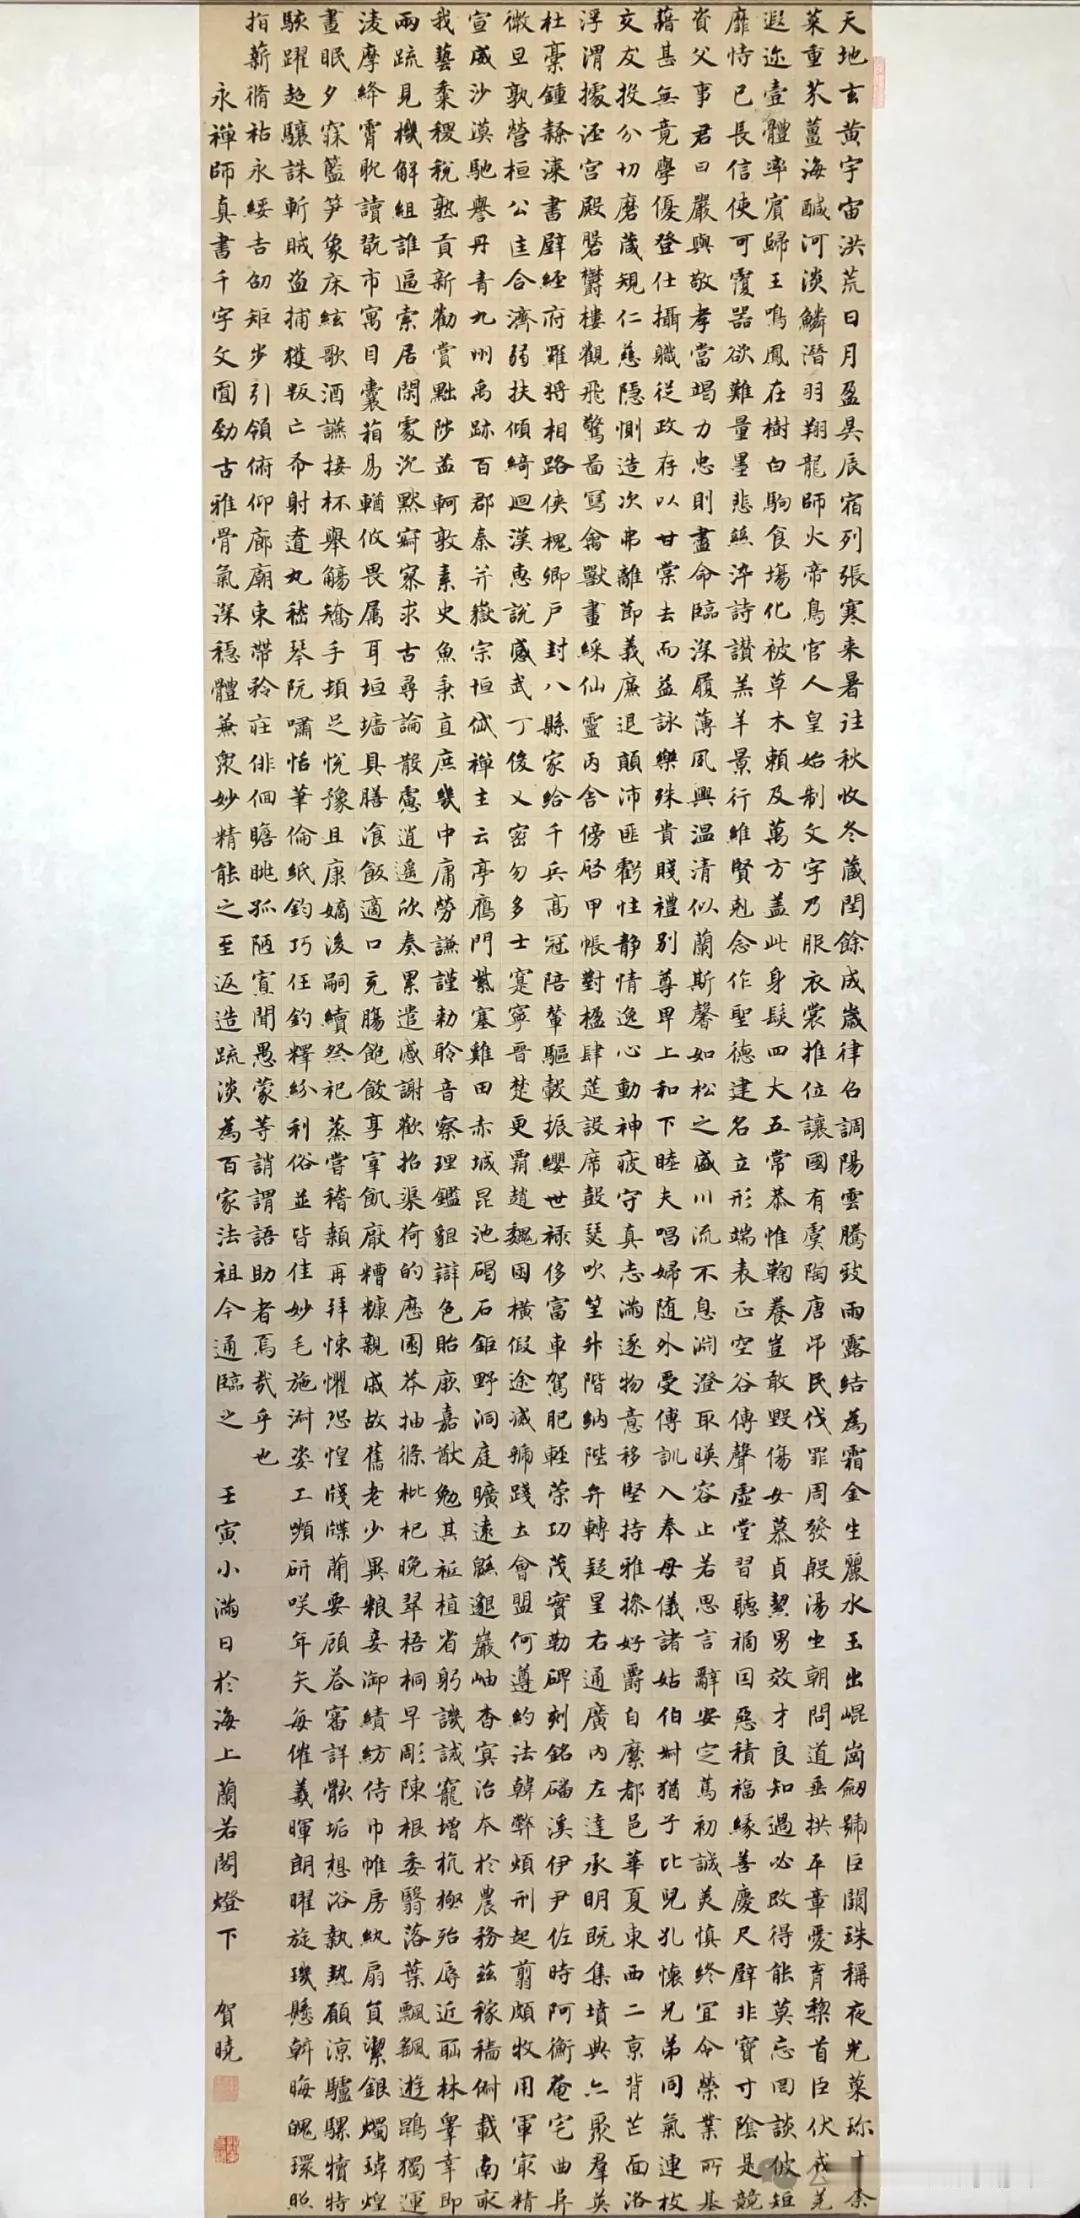 天地玄黃宇宙洪荒日月盈昃辰宿列張寒来暑往秋收冬藏閏餘成歲律召調陽雲騰致雨露結為霜金生麗水玉出崐崗劒號巨闕珠稱夜光菓珍李柰
菜重芥薑海鹹河淡鱗潛羽翔龍師火帝鳥官人皇始制文字乃服衣裳推位讓國有虞陶唐弔民伐罪周發殷湯坐朝問道垂拱平章愛育黎首臣伏戎羌
遐迩壹體率賓歸王鳴鳳在樹白駒食場化被草木賴及萬方盖此身髮四大五常恭惟鞠養豈敢毀傷女慕貞絜男效才良知過必改得能莫忘罔談彼短
靡恃己長信使可覆器欲難量墨悲絲染詩讚羔羊景行維賢剋念作聖德建名立形端表正空谷傳聲虛堂習聽禍因惡積福緣善慶尺璧非寶寸陰是競
資父事君曰嚴與敬孝當竭力忠則盡命臨深履薄夙興温清似蘭斯馨如松之盛川流不息淵澄取暎容止若思言辭安定篤初誠美慎終宜令榮業所基
藉甚無竟學優登仕攝職從政存以甘棠去而益詠樂殊貴賤禮別尊卑上和下睦夫唱婦随外受傅訓入奉母儀諸姑伯叔猶子比兒孔懷兄弟同氣連枝
交友投分切磨箴規仁慈隱惻造次弗離節義廉退顛沛匪虧性静情逸心動神疲守真志滿逐物意移堅持雅操好爵自縻都邑華夏東西二京背芒面洛
浮渭據涇宮殿磐鬱樓觀飛驚圖寫禽獸畫綵仙靈丙舍傍啓甲帳對楹肆莚設席鼓瑟吹笙升階納陛弁轉疑星右通廣內左達承明既集墳典亦聚群英
杜稾鍾隸漆書壁經府羅將相路俠槐卿戶封八縣家給千兵高冠陪輦驅轂振纓世禄侈富車駕肥輕策功茂實勒碑刻銘磻溪伊尹佐時阿衡奄宅曲阜
微旦孰營桓公匡合濟弱扶傾綺迴漢惠說感武丁俊乂密勿多士寔寧晉楚更霸趙魏困橫假途滅虢踐土會盟何遵約法韓弊煩刑起翦頗牧用軍最精
宣威沙漠馳譽丹青九州禹跡百郡秦并嶽宗恒岱禪主云亭鴈門紫塞雞田赤城昆池碣石鉅野洞庭曠遠緜邈巖岫杳冥治本於農務茲稼穡俶載南畝
我藝黍稷稅熟貢新勸賞黜陟孟軻敦素史魚秉直庶幾中庸勞謙謹勑聆音察理鑑貌辯色貽厥嘉猷勉其祗植省躬譏誡寵增抗極殆辱近恥林皋幸即
兩疏見機解組誰逼索居閑處沉默寂寥求古尋論散慮逍遥欣奏累遣慼謝歡招渠荷的歷園莽抽條枇杷晚翠梧桐早彫陳根委翳落葉飄颻遊鵾獨運
淩摩絳霄耽讀翫市寓目囊箱易輶攸畏属耳垣墻具膳飡飯適口充腸飽飫享宰飢厭糟糠親戚故舊老少異粮妾御績紡侍巾帷房紈扇員潔銀燭煒煌
晝眠夕寐籃笋象床絃歌酒讌接杯舉觴矯手頓足悅豫且康嫡後嗣續祭祀蒸嘗稽顙再拜悚懼恐惶牋牒簡要顧荅審詳骸垢想浴執熱願涼驢騾犢特
駭躍超驤誅斬賊盗捕獲叛亡布射遼丸嵇琴阮嘯恬筆倫紙鈞巧任釣釋紛利俗並皆佳妙毛施淑姿工嚬研咲年矢每催羲暉朗曜旋璣懸斡晦魄環照
指薪脩祜永綏吉劭矩步引領俯仰廊廟束帶矜莊俳佪瞻眺孤陋寡聞愚蒙等誚謂語助者焉哉乎也
永禪師真書千字文圓勁古雅骨氣深穩體兼衆妙精能之至返造疏淡為百家法祖今通臨之 壬寅小滿日於海上蘭若閣燈下 賀曉